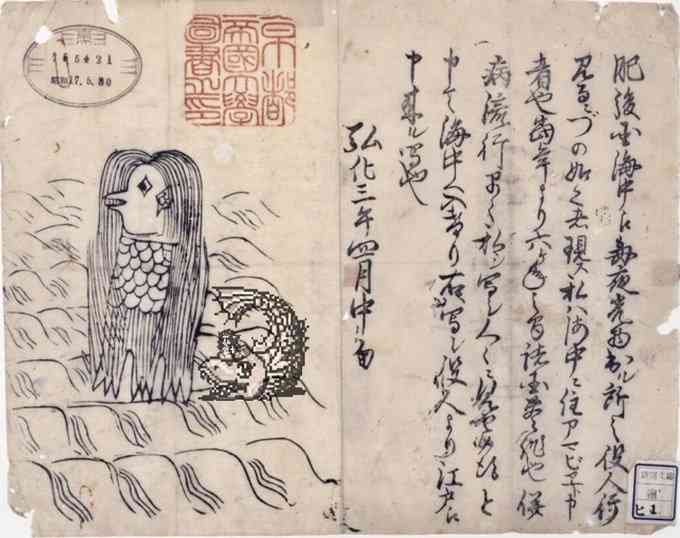 京都
帝國大學
圖書之印
肥後国海中え毎夜光物出ル所之役人行
見るニづの如く者現ス私ハ海中ニ住アマビヱト申
者也当年より六ヶ年之間諸国豊作也併
病流行早々私シ写シ人々ニ見せ候得と
申て海中へ入けり右写シ役人より江戸え
申来ル写也
弘化三年四月中旬